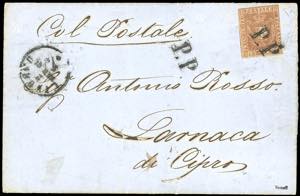 Col Postale
P.P
P.P
Antonio Rosso
Larnaca
di Cipro